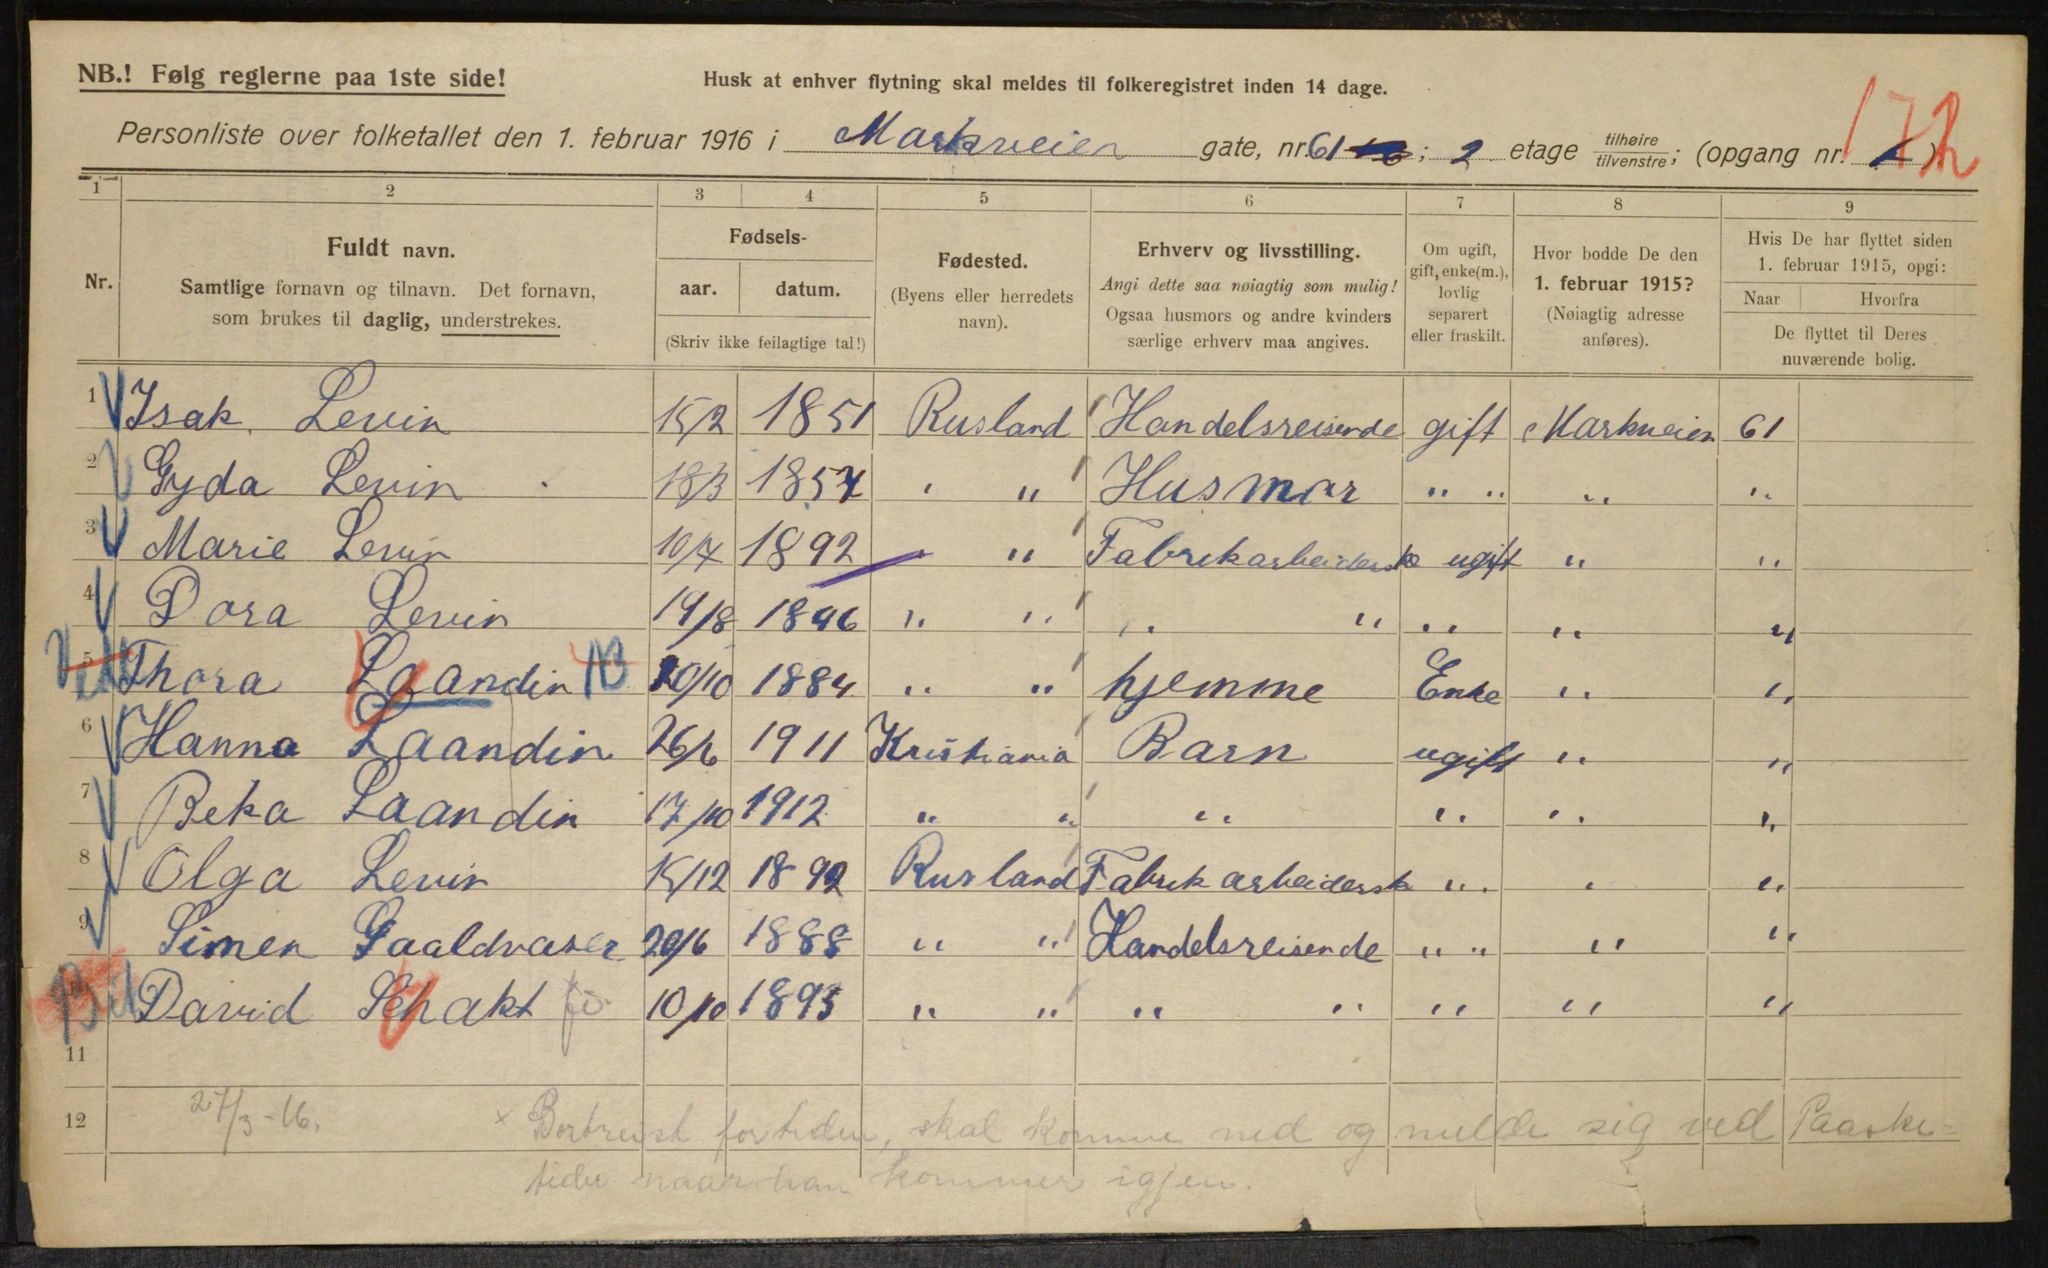 NB.! Følg reglerne paa 1ste side! Husk at enhver flytning skal meldes til folkeregistret inden 14 dage.
172
Personliste over folketallet den 1. februar 1916 i Markveien gate, nr. 61 ; 2 etage tilhøire / tilvenstre ; (opgang nr. )
1 2 3 4 5 6 7 8 9
Nr.
Fuldt navn.
Samtlige fornavn og tilnavn. Det fornavn,
som brukes til daglig, understrekes.
Fødsels-
aar. datum.
(Skriv ikke feilagtige tal!)
Fødested.
(Byens eller herredets
navn).
Erhverv og livsstilling.
Angi dette saa nøiagtig som mulig!
Ogsaa husmors og andre kvinders
særlige erhverv maa angives.
Om ugift,
gift, enke(m.),
lovlig
separert
eller fraskilt.
Hvor bodde De den
1. februar 1915?
(Nøiagtig adresse
anføres).
Hvis De har flyttet siden
1. februar 1915, opgi:
Naar Hvorfra
De flyttet til Deres
nuværende bolig.
1 Isak Levin 15/2 1851 Rusland Handelsreisende gift Markveien 61
2 Gyda Levin 18/3 1857 " " Husmor " " " "
3 Marie Levin 10/7 1892 " " Fabrikarbeiderske ugift " "
4 Dora Levin 19/8 1896 " " " " " " "
5 Thora Laandin 20/10 1884 " " hjemme Enke " "
6 Hanna Laandin 26/6 1911 Kristiania Barn ugift " "
7 Beka Laandin 17/10 1912 " " " " " "
8 Olga Levin 15/12 1892 Rusland Fabrikarbeidersk " " "
9 Simen Gaaldvaser 20/6 1888 " " Handelsreisende " " " "
David Schakt 10/10 1895 " " " " " " "
11
12 27/3-16. × Bortreist fortiden, skal komme ned og melde sig ved Paaske-
tider naar han kommer igjen.